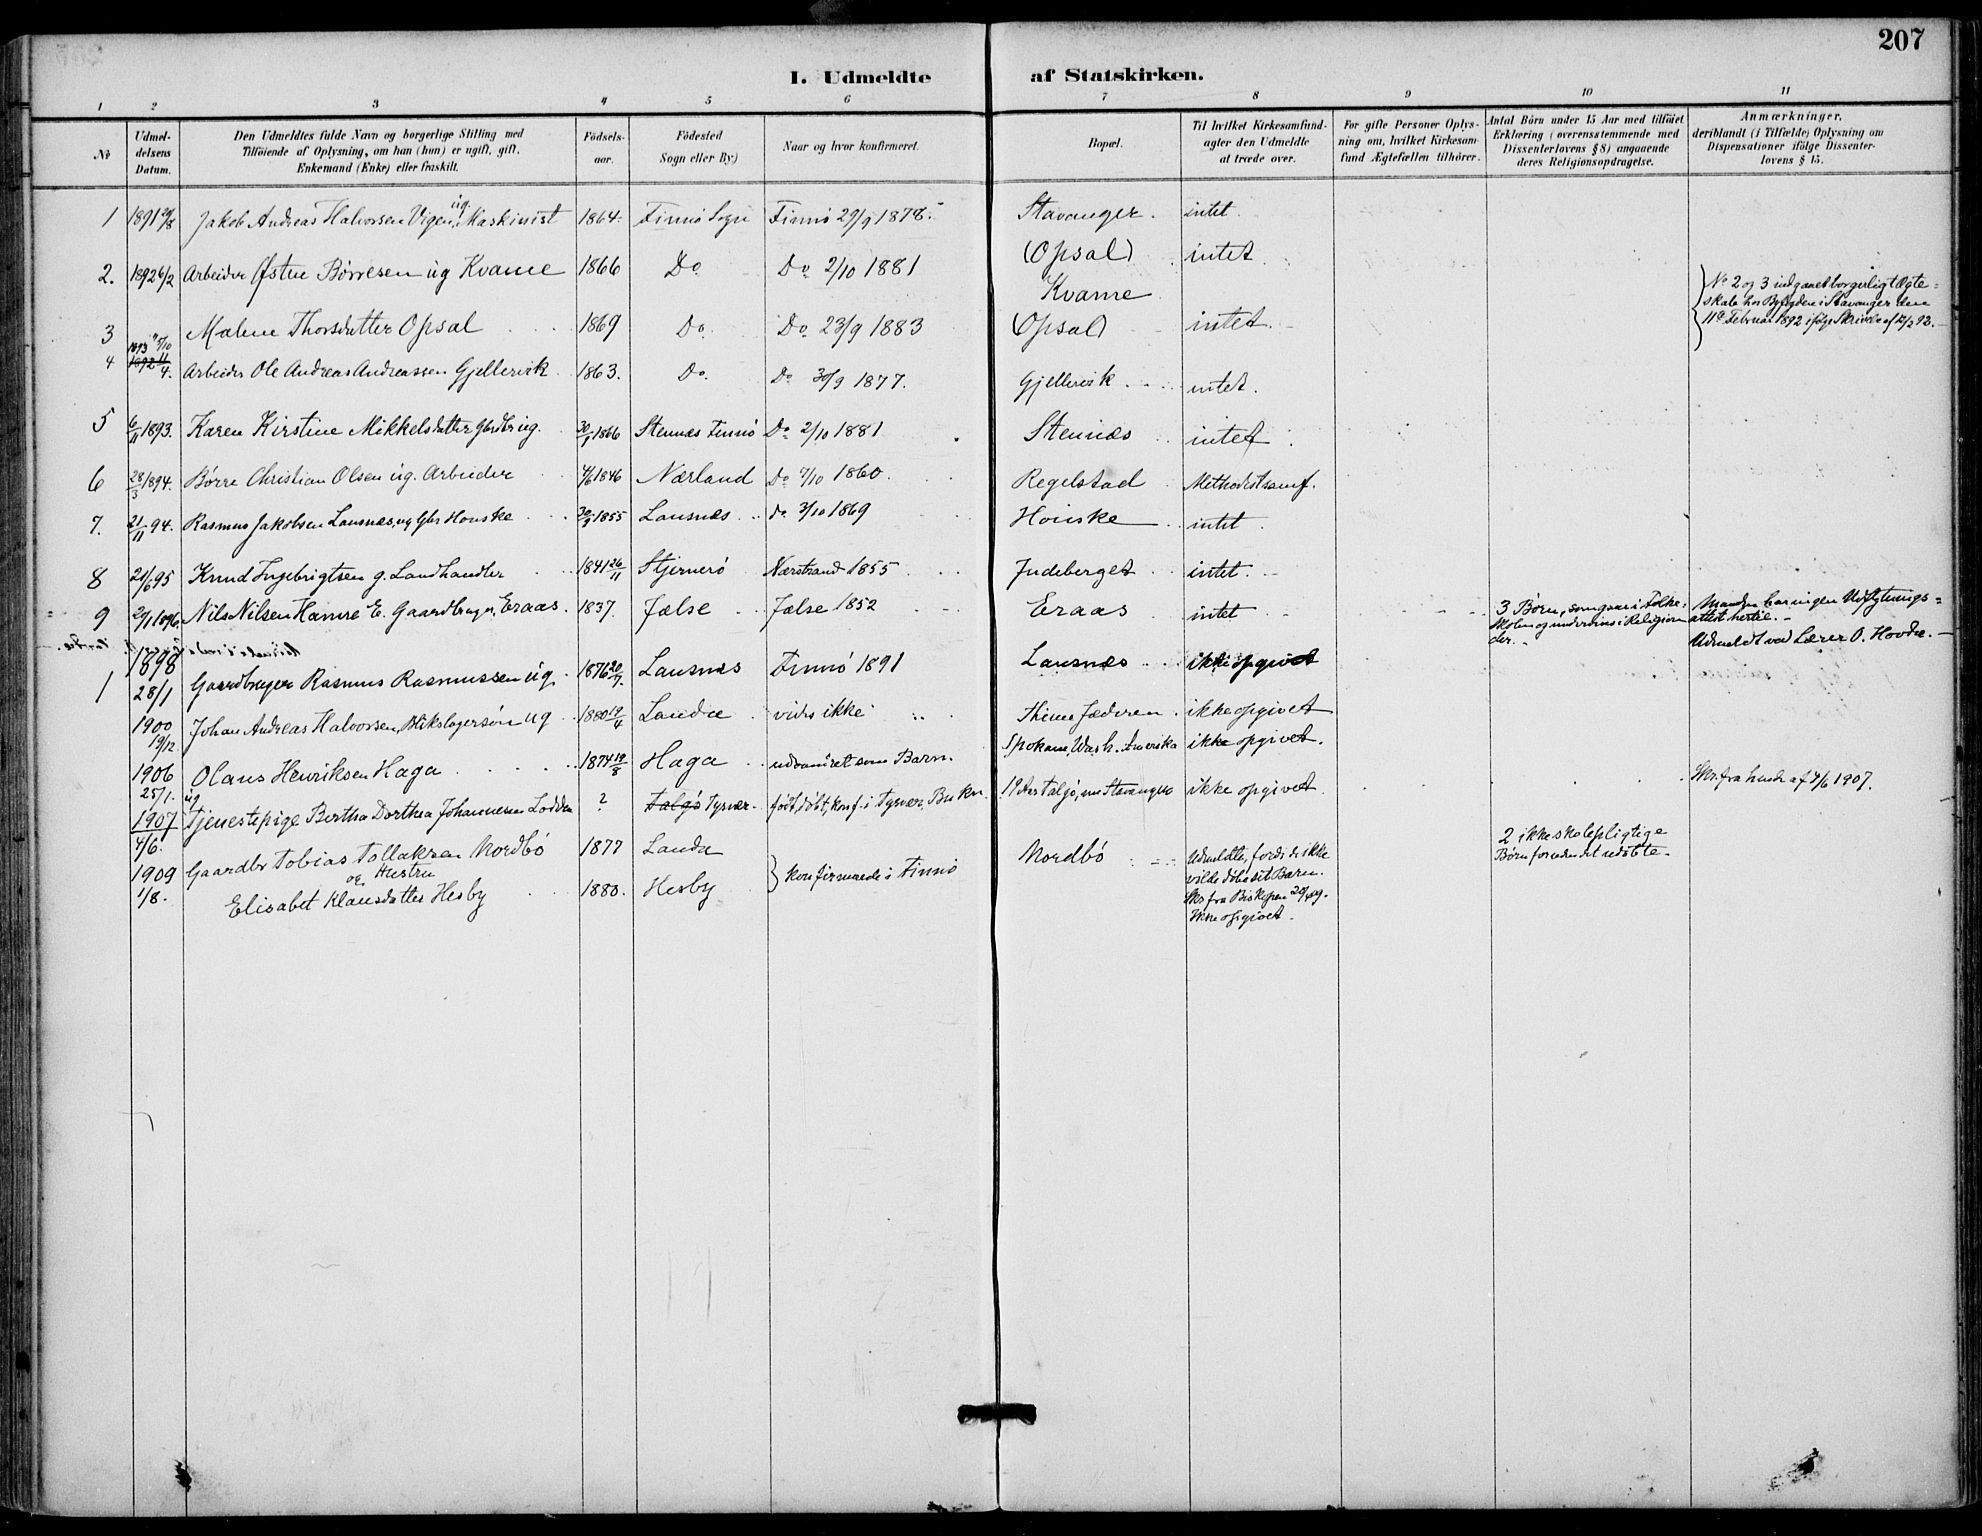 207
I. Udmeldte af Statskirken.
1 2 3 4 5 6 7 8 9 10 11
No
Udmeldelsens Datum.
Den Udmeldtes fulde Navn og borgerlige Stilling med
Tilföiende af Oplysning, om han (hun) er ugift, gift,
Enkemand (Enke) eller fraskilt.
Födselsaar.
Födested
Sogn eller By)
Naar og hvor konfirmeret.
Bopæl.
Til hvilket Kirkesamfund
agter den Udmeldte
at træde over.
For gifte Personer Oplysning
om, hvilket Kirkesamfund
Ægtefællen tilhörer.
Antal Börn under 15 Aar med tilföiet
Erklæring (overensstemmende med
Dissenterlovens § 8) angaaende
deres Religionsopdragelse.
Anmærkninger,
deriblandt (i Tilfælde) Oplysning om
Dispensationer ifölge Dissenterlovens
§ 15.
1 1891 Jakob Andreas Halvorsen Vigen, ug. Maskinist 1864. Finnö Sogn Finnö 29/9 1878. Stavanger. intet.
2. 1892 6/2 Arbeider Østen Börresen ug Kvame 1866 Do Do 2/10 1881 (Opsal) Kvame intet
3 Malene Thorsdatter Opsal 1869 Do. Do. 23/9 1883 (Opsal) intet.
} No 2 og 3 indgaaet borgerligt Ægteskab
hos Byfogden i Stavanger den
11te Februar 1892 ifölge Skrivelse af 12/2 92.
4 1893 1892 11/4. Arbeider Ole Andreas Andreassen Gjellevik 1863. Do. Do 30/9 1877. Gjellevik intet.
5 6/11 1893. Karen Kirstine Mikkelsdatter Gbrdtr ug. 30/1 1866 Stennæs Finnö Do 2/10 1881 Stennæs intet
6 28/3 1894. Börre Christian Olsen ug. Arbeider 4/6 1846 Nærland Do 7/10 1860. Regelstad Methodistsamf.
7. 21/11 94. Rasmus Jakobsen Lausnæs, ug Gbr Houske 30/9 1855 Lausnæs do. 3/10 1869 Houske intet
8 21/6 95 Knud Ingebrigtsen g. Landhandler 1841 26/11 Stjernerö Nærstrand 1855 Judeberget intet.
9 21/1 1896. Nils Nilsen Hamre E. Gaardbruger, Eraas. 1837. Jælse Jælse 1852 Eraas intet
3 Börn, som gaar i Folkeskolen
og undervises i Religion
der.
Manden har ingen Udflytningsattest
hertil.
Udmeldt ved Lærer O. Hovda.
1898
1 28/1 Gaardbruger Rasmus Rasmussen ug 1876 20/7. Lausnæs Finnö 1891 Lausnæs ikke opgivet
1900 19/12 Johan Andreas Halvorsen, Blikslagersön ug 1880 19/4 Landa vides ikke Thime Jæderen ikke opgivet
1906 25/1. Olaus Henriksen Haga ug 1874 19/8 Haga udvandret som Barn. Spokane, Wash. Amerika ikke opgivet.
1907 4/6. Tjenestepige Bertha Dorthea Johannesen Lodden ? Talgö Tysvær. född, döbt, konf. i Tysvær, Bukn. Talgö, nu Stavanger ikke opgivet
Skr. fra hende af 4/6 1907.
1909 1/8. Gaardbr Tobias Tollaksen Nordbö 1877 Landa
og Hustru
Elisabet Klausdatter Hesby 1880. Hesby
} konfirmerede i Finnö
Nordbö
Udmeldte, fordi de ikke
vilde döbe sit Barn.
Skr. fra Biskopen
Ikke opgivet.
2 ikke skolepligtige
Börn foruden det udöbte.